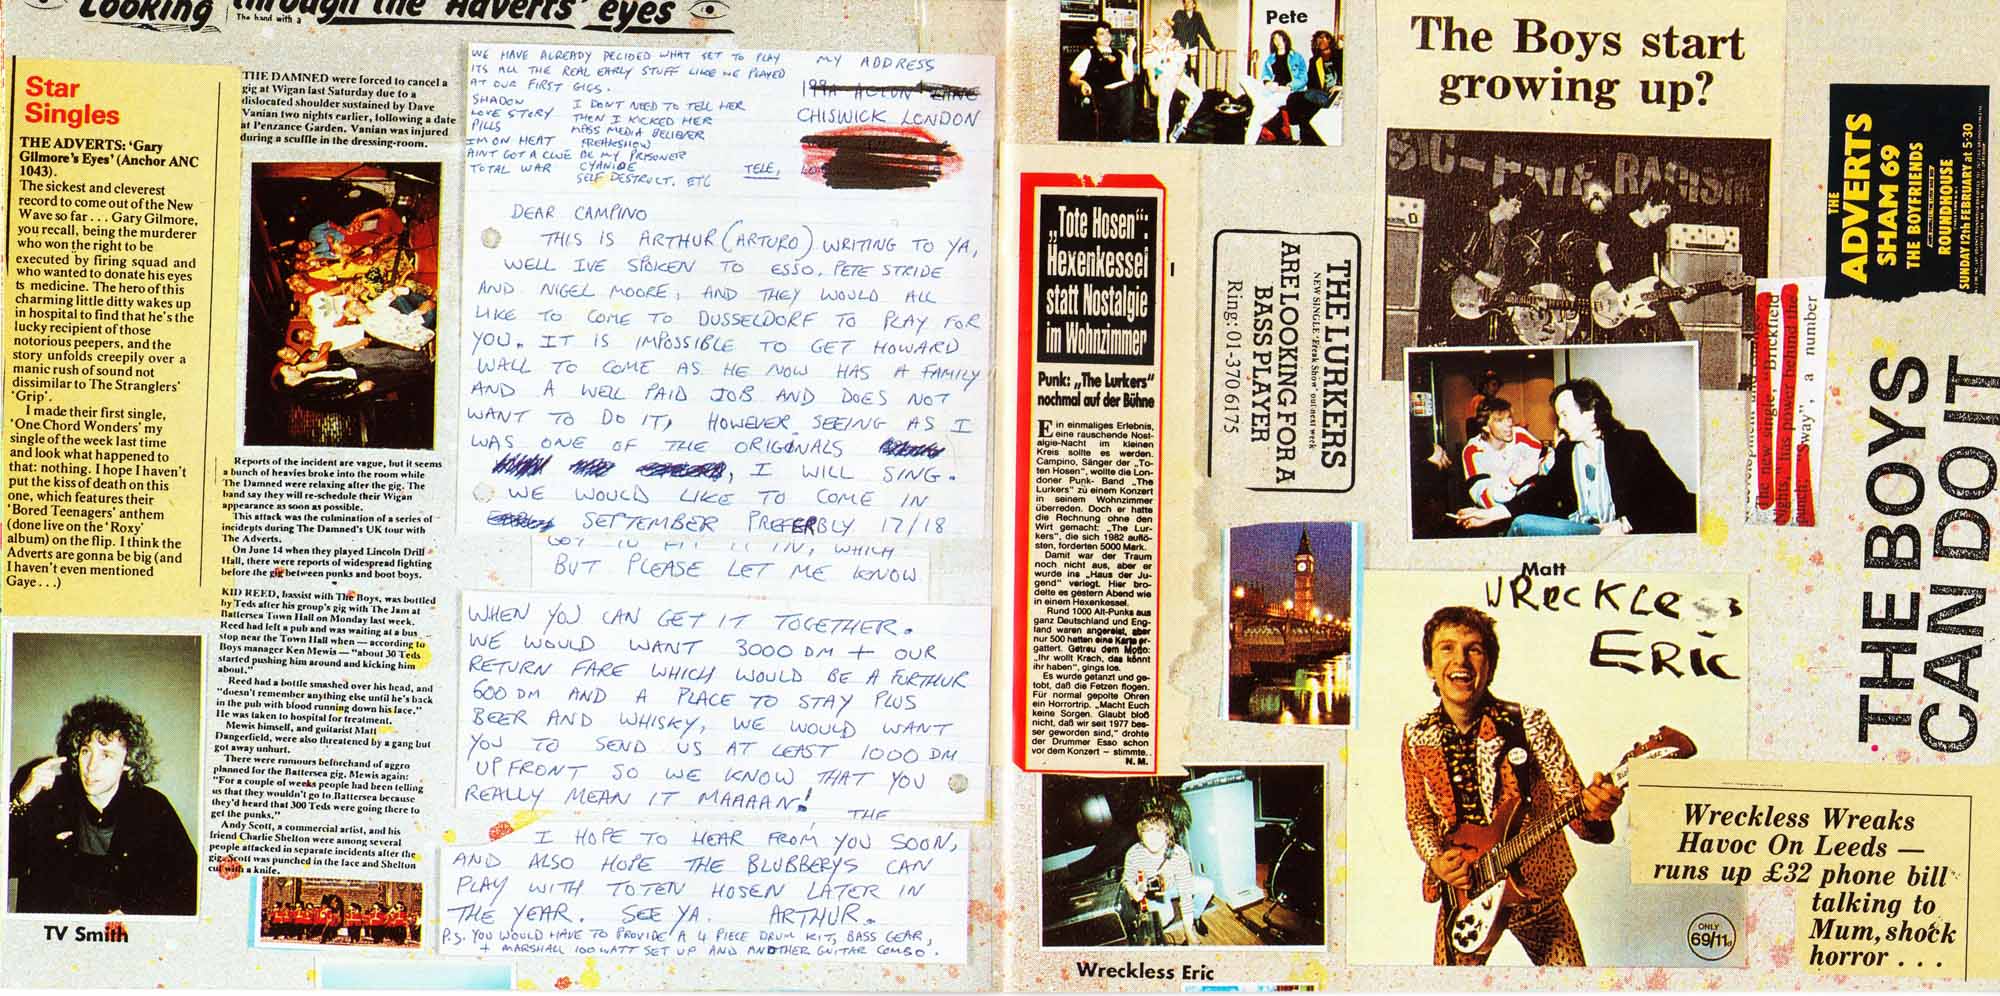 Looking through the Adverts' eyes
The band with a
Star
Singles
THE ADVERTS: 'Gary
Gilmore's Eyes' (Anchor ANC
1043).
The sickest and cleverest
record to come out of the New
Wave so far . . . Gary Gilmore,
you recall, being the murderer
who won the right to be
executed by firing squad and
who wanted to donate his eyes
ts medicine. The hero of this
charming little ditty wakes up
in hospital to find that he's the
lucky recipient of those
notorious peepers, and the
story unfolds creepily over a
manic rush of sound not
dissimilar to The Stranglers'
'Grip'.
I made their first single,
'One Chord Wonders' my
single of the week last time
and look what happened to
that: nothing. I hope I haven't
put the kiss of death on this
one, which features their
'Bored Teenagers' anthem
(done live on the 'Roxy'
album) on the flip. I think the
Adverts are gonna be big (and
I haven't even mentioned
Gaye . . .)
TV Smith
THE DAMNED were forced to cancel a
gig at Wigan last Saturday due to a
dislocated shoulder sustained by Dave
Vanian two nights earlier, following a date
at Penzance Garden. Vanian was injured
during a scuffle in the dressing-room.
Reports of the incident are vague, but it seems
a bunch of heavies broke into the room while
The Damned were relaxing after the gig. The
band say they will re-schedule their Wigan
appearance as soon as possible.
This attack was the culmination of a series of
incidents during The Damned's UK tour with
The Adverts.
On June 14 when they played Lincoln Drill
Hall, there were reports of widespread fighting
before the gig between punks and boot boys.
KID REED, bassist with The Boys, was bottled
by Teds after his group's gig with The Jam at
Battersea Town Hall on Monday last week.
Reed had left a pub and was waiting at a bus
stop near the Town Hall when — according to
Boys manager Ken Mewis — "about 30 Teds
started pushing him around and kicking him
about."
Reed had a bottle smashed over his head, and
"doesn't remember anything else until he's back
in the pub with blood running down his face."
He was taken to hospital for treatment.
Mewis himself, and guitarist Matt
Dangerfield, were also threatened by a gang but
got away unhurt.
There were rumours beforehand of aggro
planned for the Battersea gig. Mewis again:
"For a couple of weeks people had been telling
us that they wouldn't go to Battersea because
they'd heard that 300 Teds were going there to
get the punks."
Andy Scott, a commercial artist, and his
friend Charlie Shelton were among several
people attacked in separate incidents after the
gig. Scott was punched in the face and Shelton
cut with a knife.
WE HAVE ALREADY DECIDED WHAT SET TO PLAY
ITS ALL THE REAL EARLY STUFF LIKE WE PLAYED
AT OUR FIRST GIGS.
SHADOW I DONT NEED TO TELL HER
LOVE STORY THEN I KICKED HER
PILLS MASS MEDIA BELIEVER
IM ON HEAT FREAKSHOW
AINT GOT A CLUE BE MY PRISONER
TOTAL WAR CYANIDE
SELF DESTRUCT. ETC
MY ADDRESS
199A ACTON LANE
CHISWICK LONDON
TELE,
DEAR CAMPINO
THIS IS ARTHUR (ARTURO) WRITING TO YA,
WELL IVE SPOKEN TO ESSO, PETE STRIDE
AND NIGEL MOORE, AND THEY WOULD ALL
LIKE TO COME TO DUSSELDORF TO PLAY FOR
YOU. IT IS IMPOSSIBLE TO GET HOWARD
WALL TO COME AS HE NOW HAS A FAMILY
AND A WELL PAID JOB AND DOES NOT
WANT TO DO IT, HOWEVER SEEING AS I
WAS ONE OF THE ORIGONALS
, I WILL SING.
WE WOULD LIKE TO COME IN
SEPTEMBER PREFERBLY 17/18
WHICH
BUT PLEASE LET ME KNOW
WHEN YOU CAN GET IT TOGETHER.
WE WOULD WANT 3000 DM + OUR
RETURN FARE WHICH WOULD BE A FURTHUR
600 DM AND A PLACE TO STAY PLUS
BEER AND WHISKY, WE WOULD WANT
YOU TO SEND US AT LEAST 1000 DM
UPFRONT SO WE KNOW THAT YOU
REALLY MEAN IT MAAAAN!
THE
I HOPE TO HEAR FROM YOU SOON,
AND ALSO HOPE THE BLUBBERYS CAN
PLAY WITH TOTEN HOSEN LATER IN
THE YEAR. SEE YA. ARTHUR.
P.S. YOU WOULD HAVE TO PROVIDE A 4 PIECE DRUM KIT, BASS GEAR,
+ MARSHALL 100 WATT SET UP AND ANOTHER GUITAR COMBO.
Pete
„Tote Hosen":
Hexenkessel
statt Nostalgie
im Wohnzimmer
Punk: „The Lurkers"
nochmal auf der Bühne
Ein einmaliges Erlebnis,
eine rauschende Nost-
algie-Nacht im kleinen
Kreis sollte es werden.
Campino, Sänger der „To-
ten Hosen", wollte die Lon-
doner Punk- Band „The
Lurkers" zu einem Konzert
in seinem Wohnzimmer
überreden. Doch er hatte
die Rechnung ohne den
Wirt gemacht: „The Lur-
kers", die sich 1982 auflö-
sten, forderten 5000 Mark.
Damit war der Traum
noch nicht aus, aber er
wurde ins „Haus der Ju-
gend" verlegt. Hier bro-
delte es gestern Abend wie
in einem Hexenkessel.
Rund 1000 Alt-Punks aus
ganz Deutschland und Eng-
land waren angereist, aber
nur 500 hatten eine Karte er-
gattert. Getreu dem Motto:
„Ihr wollt Krach, das könnt
ihr haben", gings los.
Es wurde getanzt und ge-
tobt, daß die Fetzen flogen.
Für normal gepolte Ohren
ein Horrortrip. „Macht Euch
keine Sorgen. Glaubt bloß
nicht, daß wir seit 1977 bes-
ser geworden sind," drohte
der Drummer Esso schon
vor dem Konzert – stimmte.
N. M.
THE LURKERS
NEW SINGLE 'Freak Show' out next week
ARE LOOKING FOR A
BASS PLAYER
Ring: 01-370 6175
Wreckless Eric
The Boys start
growing up?
Matt
WRECKLESS
ERIC
ONLY
69/11d
THE
ADVERTS
SHAM 69
THE BOYFRIENDS
ROUNDHOUSE
SUNDAY 12th FEBRUARY at 5·30
The new single, "Brickfield
Nights" has power behind the
punch. "Sway", a number
THE BOYS
CAN DO IT
Wreckless Wreaks
Havoc On Leeds —
runs up £32 phone bill
talking to
Mum, shock
horror . . .